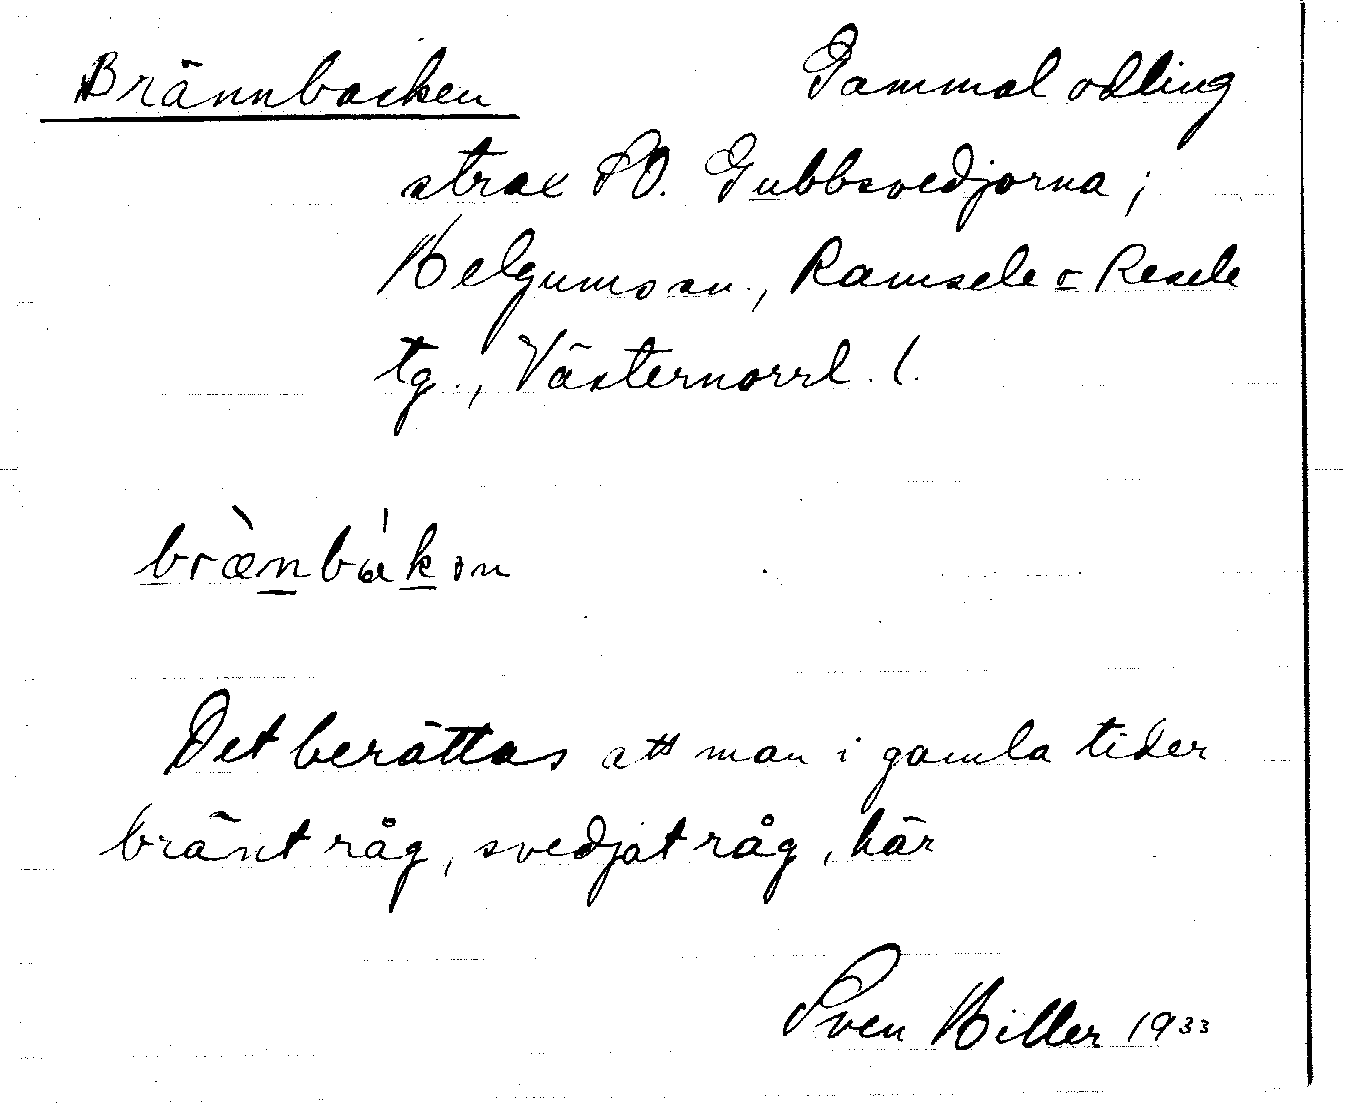 Brännbacken Gammal odling
strax SO. Gubbsvedjorna;
Helgums sn., Ramsele o Resele
tg., Västernorrl. l.
brænbakən
Det berättas att man i gamla tider
bränt råg, svedjat råg, här
Sven Hiller 1933